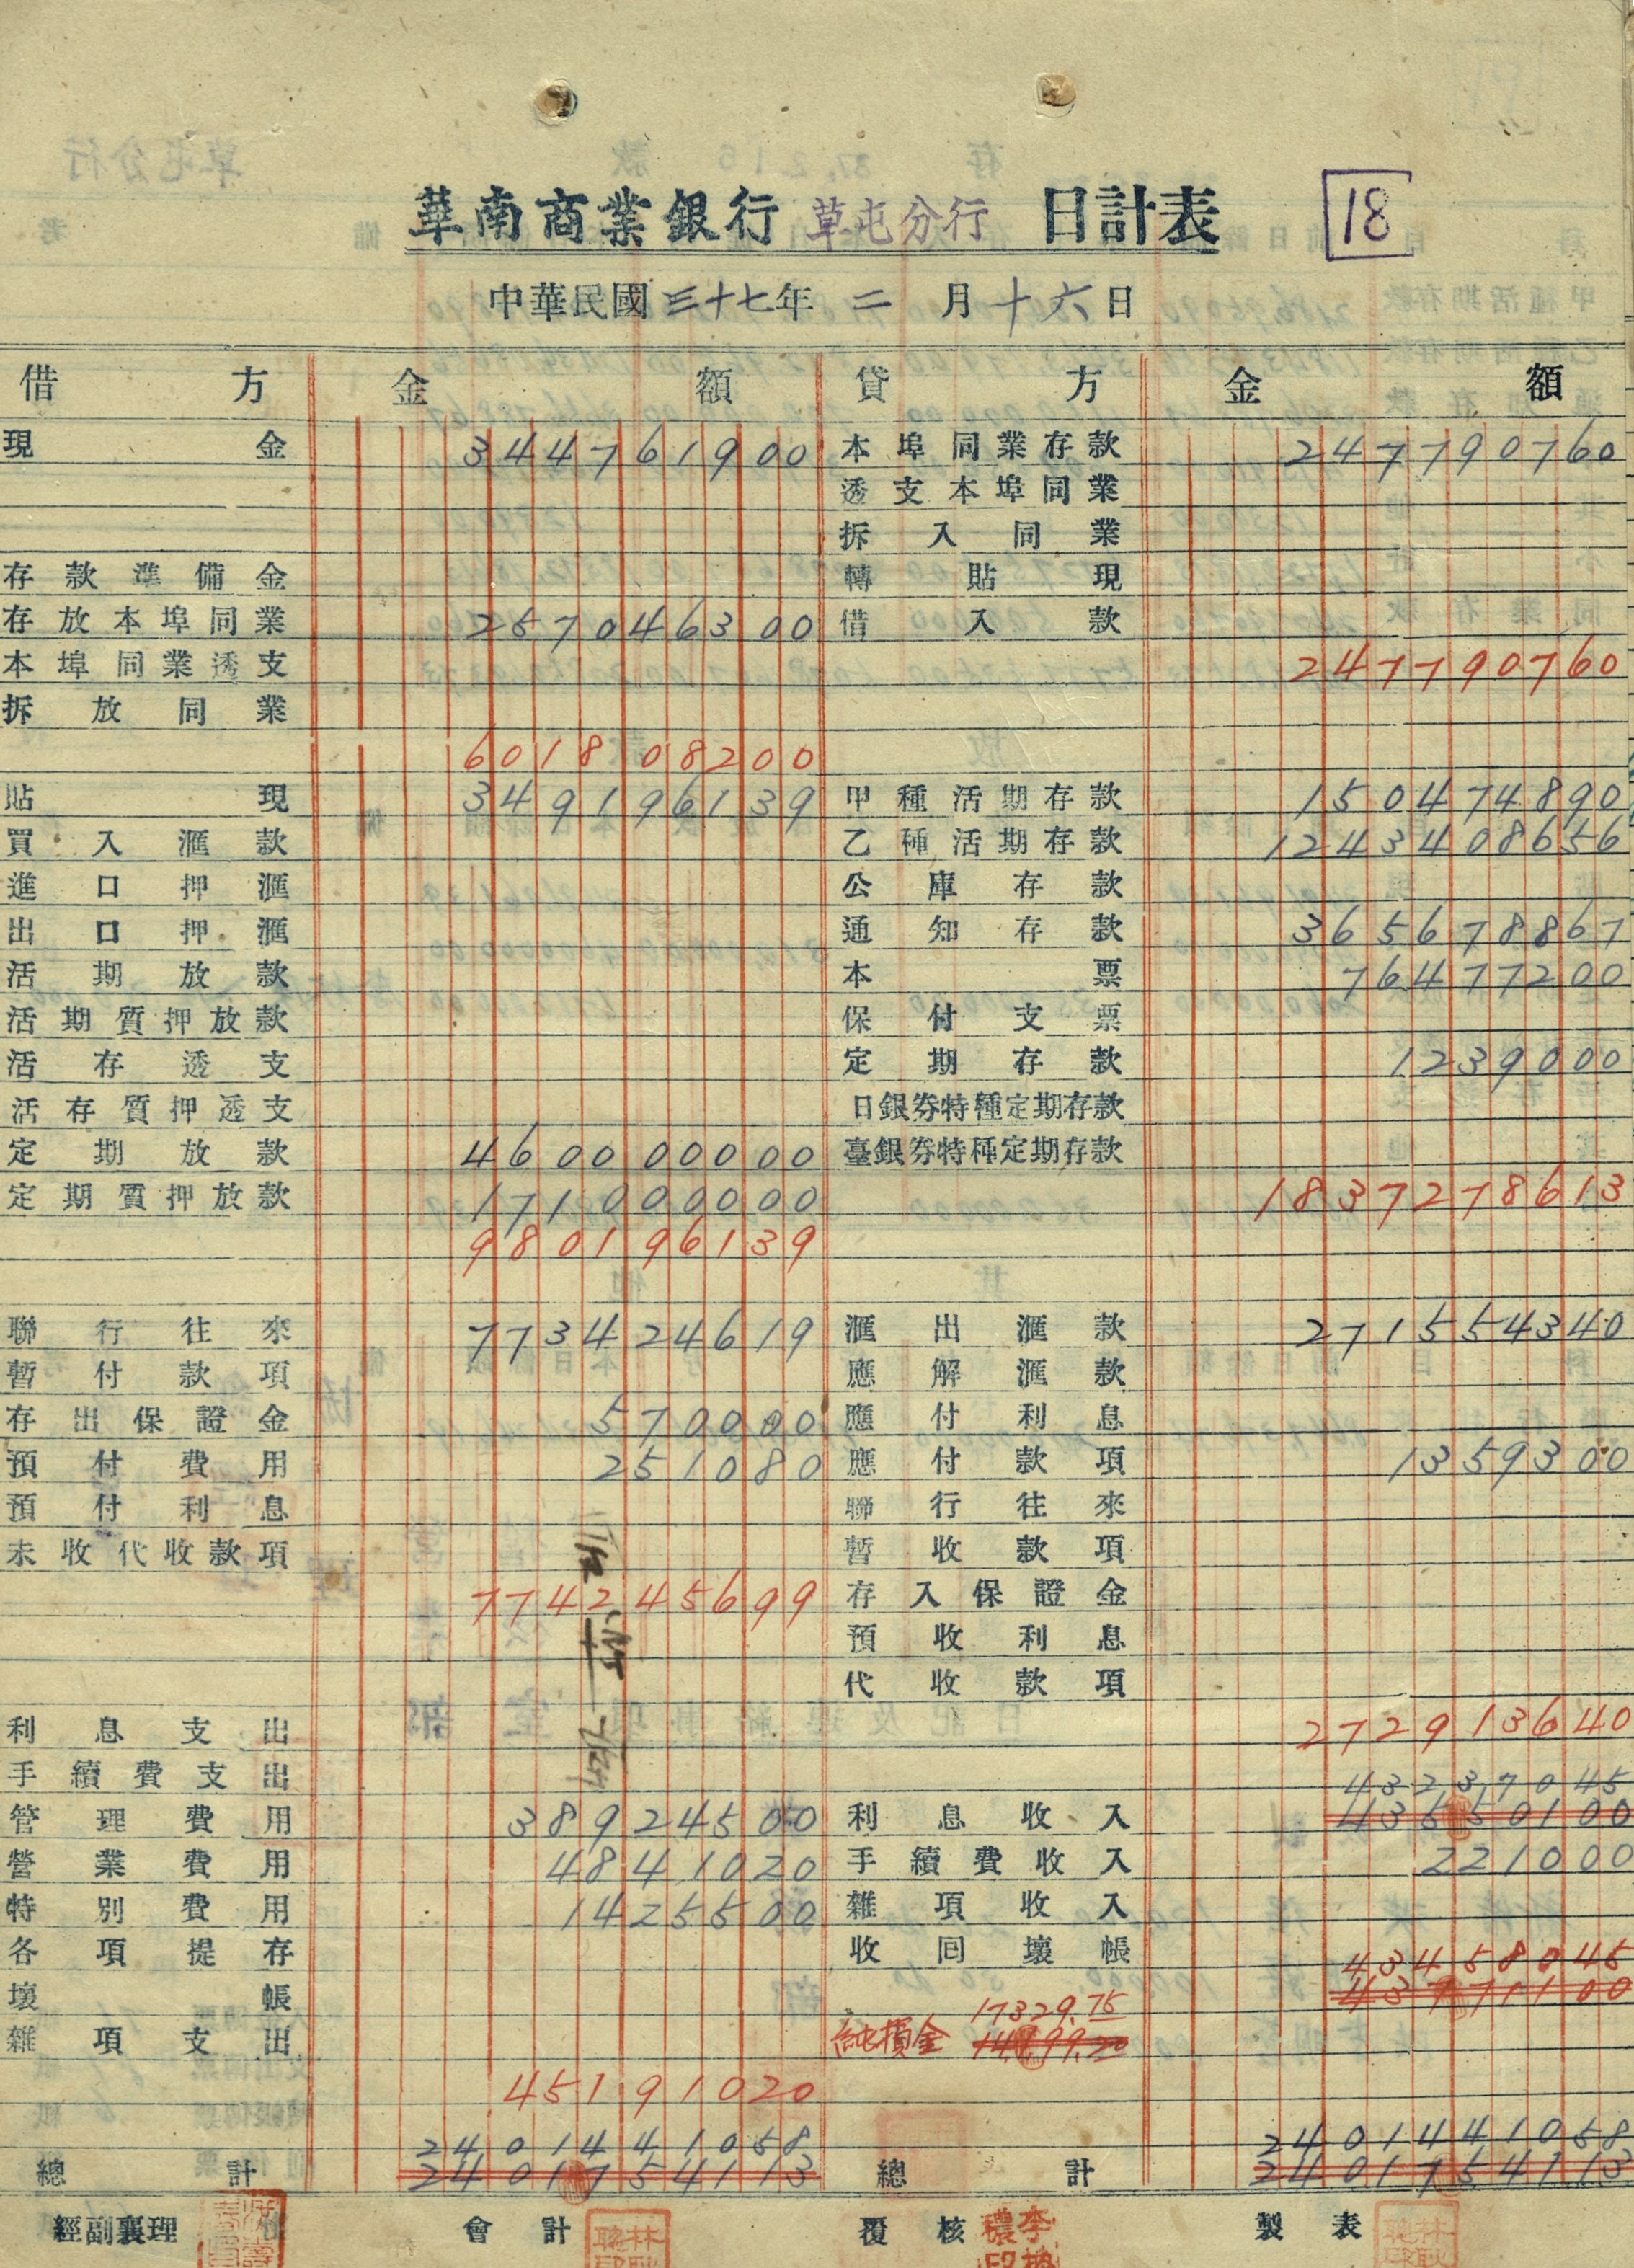 華南商業銀行 草屯分行 日計表 18
中華民國三十七年 二 月 十六 日
借方 金額 貸方 金額
現金 344761900 本埠同業存款 247790760
透支本埠同業
拆入同業
存款準備金 轉貼現
存放本埠同業 257046300 借入款
本埠同業透支 247790760
拆放同業
601808200
貼現 349196139 甲種活期存款 150474890
買入滙款 乙種活期存款 1243408656
進口押滙 公庫存款
出口押滙 通知存款 365678867
活期放款 本票 76477200
活期質押放款 保付支票
活存透支 定期存款 1239000
活存質押透支 日銀券特種定期存款
定期放款 460000000 臺銀券特種定期存款
定期質押放款 171000000 1837278613
980196139
聯行往來 773424619 滙出滙款 271554340
暫付款項 應解滙款
存出保證金 570000 應付利息
預付費用 251080 應付款項 1359300
預付利息 聯行往來
未收代收款項 暫收款項
774245699 存入保證金
預收利息
代收款項
利息支出 272913640
手續費支出 43237045
管理費用 38924500 利息收入 43550100
營業費用 4841020 手續費收入 221000
特別費用 1425500 雜項收入
各項提存 收回壞帳 43458045
壞帳 43771100
17329.75
雜項支出 純損金 14199.20
45191020
2401441058 2401441058
總計 2401754113 總計 2401754113
經副襄理 會計 覆核 製表